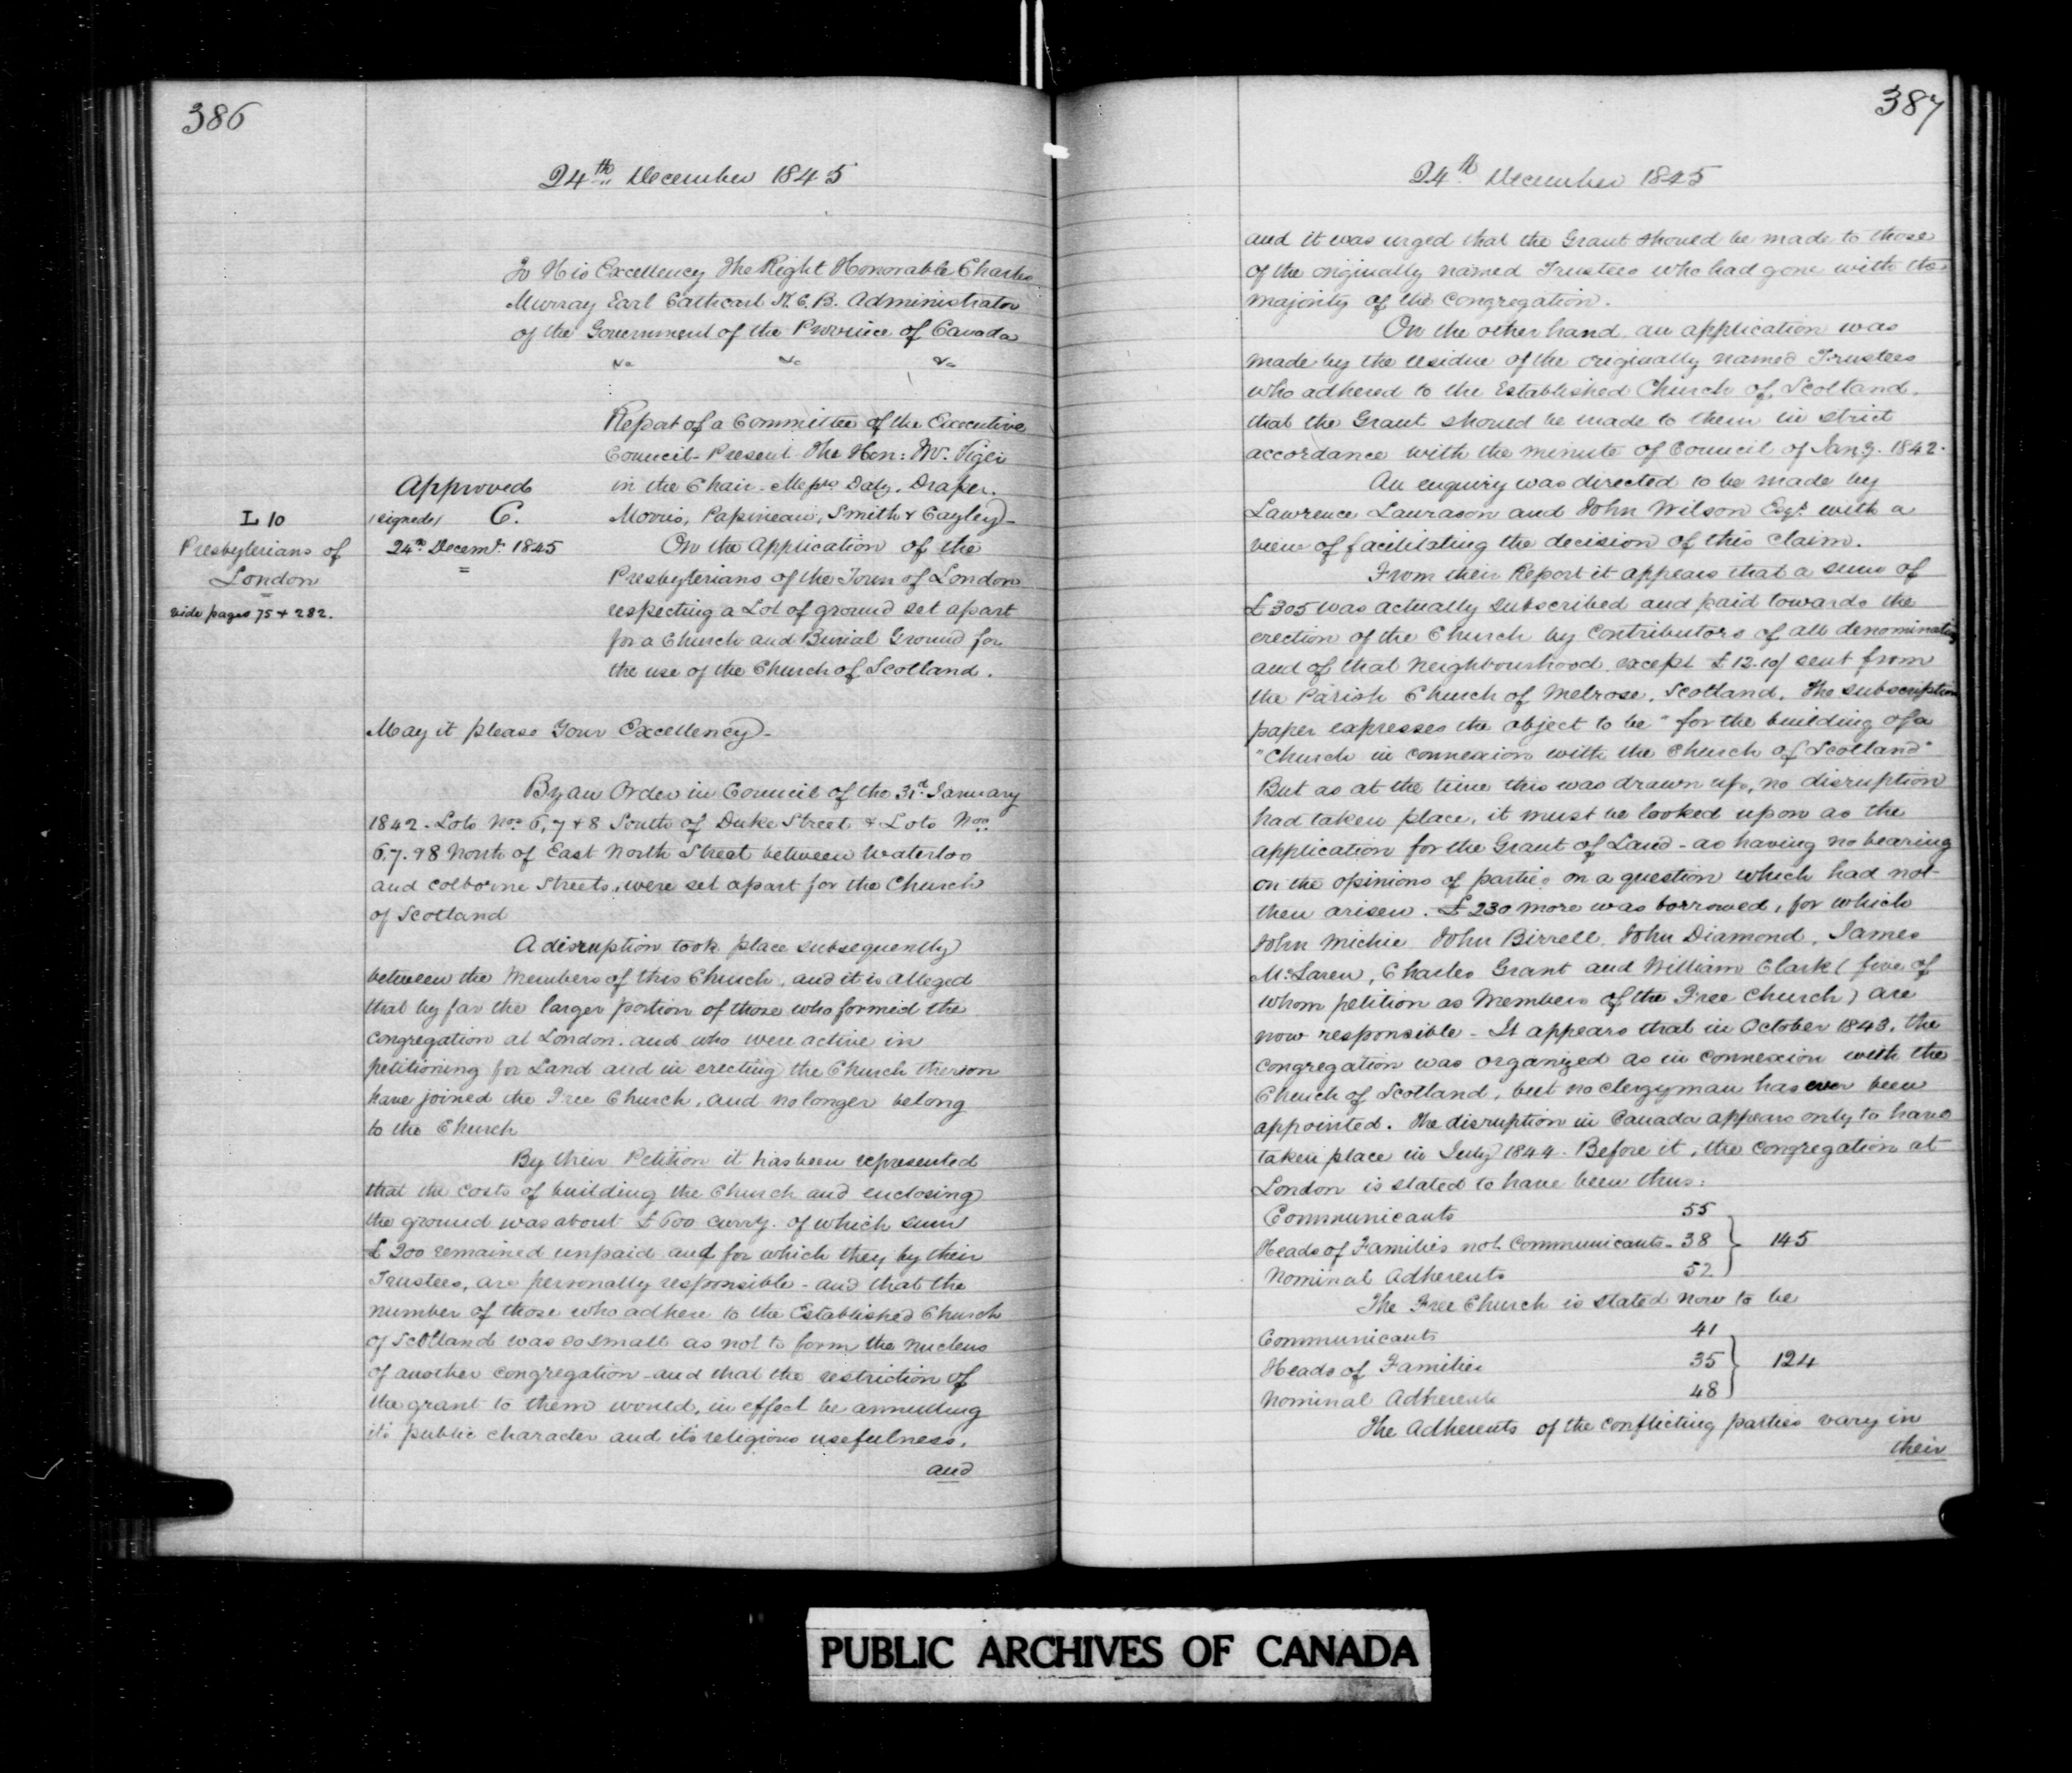 386
24th December 1845
To His Excellency The Right Honorable Charles
Murray Earl Cathcart K.C.B. Administrator
of the Government of the Province of Canada
&c &c &c
Report of a Committee of the Executive
Council - Present The Hon: Mr. Viger
in the Chair - Messrs Daly, Draper,
Morris, Papineau, Smith & Cayley -
Approved
(signed) C.
24th Decemr. 1845
L 10
Presbyterians of
London
vide pages 75 & 282.
On the Application of the
Presbyterians of the Town of London
respecting a Lot of ground set apart
for a Church and Burial Ground for
the use of the Church of Scotland.
May it please Your Excellency -
By an Order in Council of the 31st January
1842 - Lots Nos. 6, 7 & 8 South of Duke Street & Lots Nos.
6. 7. & 8 North of East North Street between Waterloo
and Colborne Streets, were set apart for the Church
of Scotland
A disruption took place subsequently
between the Members of this Church, and it is alleged
that by far the larger portion of those who formed the
congregation at London. and who were active in
petitioning for Land and in erecting the Church thereon
have joined the Free Church, and no longer belong
to the Church
By their Petition it has been represented
that the costs of building the Church and enclosing
the ground was about £600 curry. of which sum
£200 remained unpaid and for which they by their
Trustees, are personally responsible - and that the
number of those who adhere to the Established Church
of Scotland was so small as not to form the nucleus
of another congregation - and that the restriction of
the grant to them would, in effect be annulling
its public character and its religious usefulness.
and
387
24th December 1845
and it was urged that the Grant should be made to those
of the originally named Trustees who had gone with the
majority of the Congregation.
On the other hand an application was
made by the residue of the originally named Trustees
who adhered to the Established Church of Scotland.
that the Grant should be made to them in strict
accordance with the minute of Council of Jany. 1842.
An enquiry was directed to be made by
Lawrence Laurason and John Wilson Esqr. with a
view of facilitating the decision of this claim.
From their Report it appears that a sum of
£305 was actually subscribed and paid towards the
erection of the Church by contributors of all denominations
and of that neighbourhood except £12.10/ sent from
the Parish Church of Melrose, Scotland. The subscription
paper expresses the object to be "for the building of a
"Church in connexion with the Church of Scotland"
But as at the time this was drawn up, no disruption
had taken place, it must be looked upon as the
application for the Grant of Land - as having no bearing
on the opinions of parties on a question which had not
then arisen. £230 more was borrowed, for which
John Michie John Birrell, John Diamond, James
McLaren, Charles Grant and William Clark (five of
whom petition as Members of the Free Church) are
now responsible - It appears that in October 1843, the
congregation was organized as in connexion with the
Church of Scotland, but no clergyman has ever been
appointed. The disruption in Canada appears only to have
taken place in July 1844. Before it, the congregation at
London is stated to have been thus:
Communicants 55
Heads of Families not Communicants - 38 } 145
Nominal Adherents 52
The Free Church is stated now to be
Communicants 41
Heads of Families 35 } 124
Nominal Adherents 48
The Adherents of the conflicting parties vary in
their
PUBLIC ARCHIVES OF CANADA